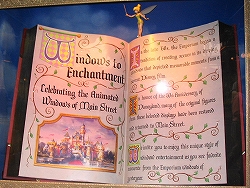 Windows to
Enchantment
Celebrating the Animated
Windows of Main Street
the Emporium began a
tradition of creating scenes in its
windows that depicted memorable moments from a
Disney film.
In honor of the 50th Anniversary of
Disneyland many of the original figures
from these beloved displays have been restored
and returned to Main Street.
We invite you to enjoy this unique style of
animated entertainment as you see favorite
moments from the Emporium windows of